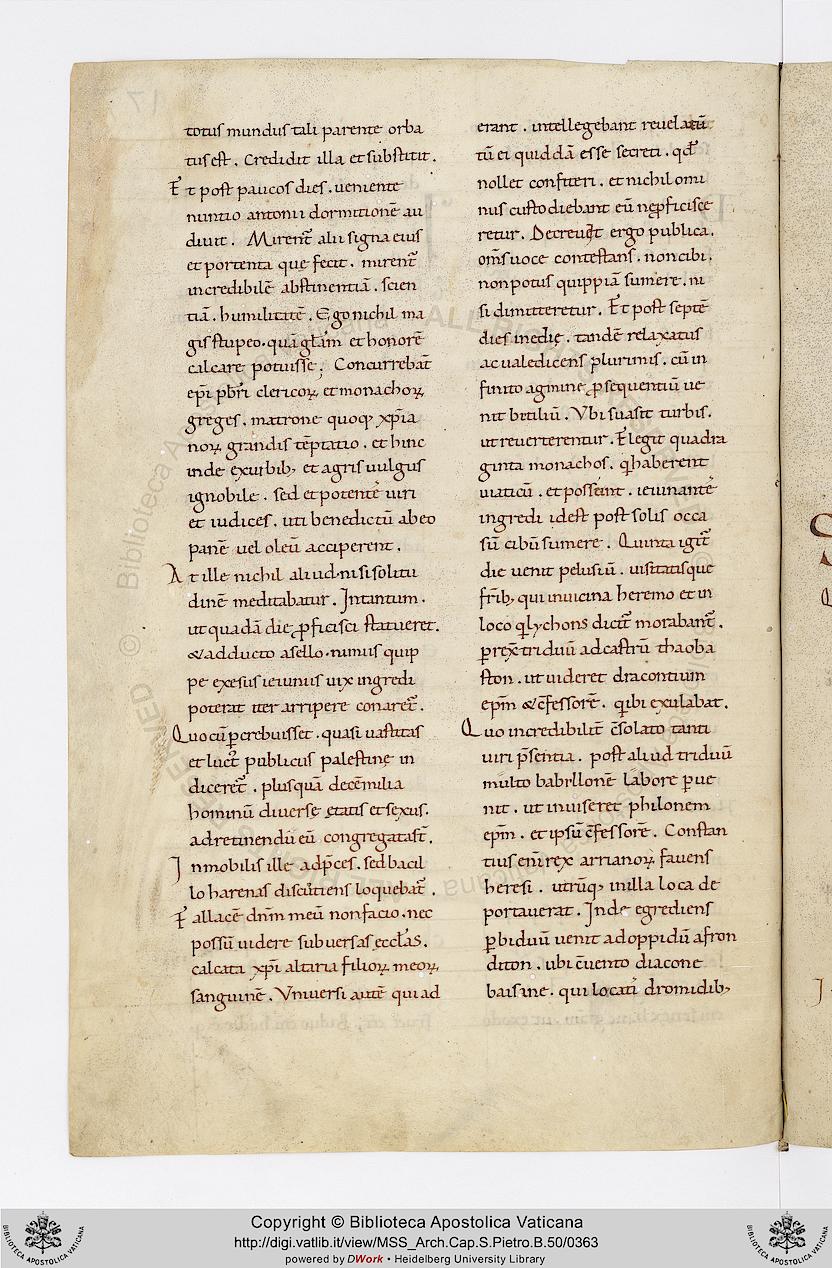 totus mundus tali parente orba
tus est. Credidit illa et substitit.
Et post paucos dies. ueniente
nuntio antonii dormitionē au
diuit. Mirent᷑ alii signa eius
et portenta que fecit. mirent᷑
incredibilē abstinentiā. scien
tiā. humilitatē. Ego nichil ma
gis stupeo. quā gl̄am et honorē
calcare potuisse; Concurrebāt
ep̄i pb̄ri clericoꝝ et monachoꝝ
greges. matrone quoq; xp̄ia
noꝝ grandis tēptatio. et hinc
inde ex urbib; et agris uulgus
ignobile. sed et potentē uiri
et iudices. uti benedictū ab eo
panē uel oleū acciperent.
At ille nichil aliud nisi solitu
dinē meditabatur. Intantum.
ut quadā die ꝓficisci statueret.
& adducto asello. nimis quip
pe exesus ieiuniis uix ingredi
poterat iter arripere conaret᷑.
Quo cū ꝑcrebuisset. quasi uastitas
et luct᷑ publicus palestine in
diceret᷑. plusquā decē milia
hominū diuerse etatis et sexus.
ad retinendū eū congregata st̄.
Inmobilis ille ad p̄ces. sed bacil
lo harenas discutiens loquebat᷑.
Fallacē dn̄m meū non facio. nec
possū uidere subuersas eccl̄as.
calcata xp̄i altaria filioꝝ meoꝝ
sanguinē. Vniuersi autē qui ad
erant. intellegebant reuelatū
tū ei quiddā esse secreti. qd̄
nollet confiteri. et nichilomi
nus custodiebant eū ne ꝓficisce
retur. Decreuit ergo publica.
om̄s uoce contestans. non cibi.
non potus quippiā sumere. ni
si dimitteretur. Et post septē
dies inedię. tandē relaxatus
ac ualedicens plurimis. cū in
finito agmine ꝓsequentiū ue
nit betiliū. Vbi suasit turbis.
ut reuerterentur. Elegit quadra
ginta monachos. q̇ haberent
uiaticū. et possent. ieiunantē
ingredi idest post solis occa
sū cibū sumere. Quinta igit᷑
die uenit pelusiū. uisitatisque
fr̄ib; qui in uicina heremo et in
loco q̇ lychons dicit᷑ morabant᷑.
ꝑrex̄ triduū ad castrū thaoba
ston. ut uideret dracontium
ep̄m & c̄fessorē. q̇ ibi exulabat.
Quo incredibilit᷑ c̄solato tanti
uiri p̄sentia. post aliud triduū
multo babyllonē labore ꝑue
nit. ut inuiseret philonem
ep̄m. et ipsū c̄fessorē. Constan
tius eni᷑ rex arrianoꝝ fauens
heresi. utrūq; in illa loca de
portauerat. Inde egrediens
ꝑ biduū uenit ad oppidū afron
diton. ubi c̄uento diacone
baisane. qui locatis dromidib;
Copyright © Biblioteca Apostolica Vaticana
http://digi.vatlib.it/view/MSS_Arch.Cap.S.Pietro.B.50/0363
powered by DWork • Heidelberg University Library